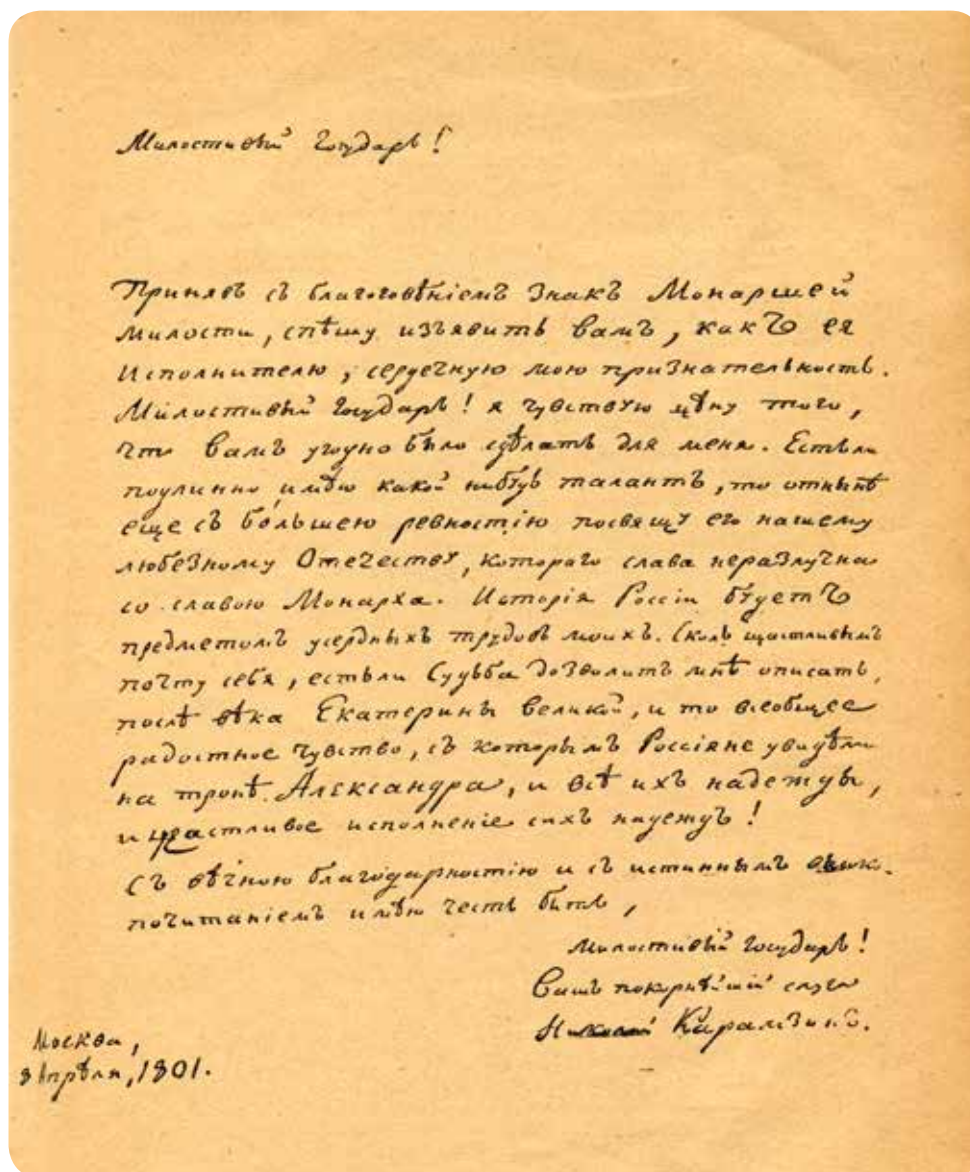 Милостивый Государь!
Принявъ съ благоговѣніемъ знакъ Монаршей
милости, спѣшу изъявить вамъ, какъ ея
Исполнителю, сердечную мою признательность.
Милостивый Государь! я чувствую цѣну того,
что вамъ угодно было сдѣлать для меня. Естьли
подлинно имѣю какой нибудь талантъ, то отнынѣ
еще съ бо́льшею ревностію посвящу его нашему
любезному Отечеству, котораго слава неразлучна
со славою Монарха. Исторія Россіи будетъ
предметомъ усердныхъ трудовъ моихъ. Сколь щастливымъ
почту себя, естьли Судьба дозволитъ мнѣ описать,
послѣ вѣка Екатерины Великой, и то всеобщее
радостное чувство, съ которымъ Россіяне увидѣли
на тронѣ Александра, и всѣ ихъ надежды,
и щастливое исполненіе сихъ надеждъ!
Съ вѣчною благодарностію и съ истиннымъ высоко-
почитаніемъ имѣю честь быть,
Милостивый Государь!
Вашъ покорнѣйшій слуга
Николай Карамзинъ.
Москва,
8 Апрѣля, 1801.